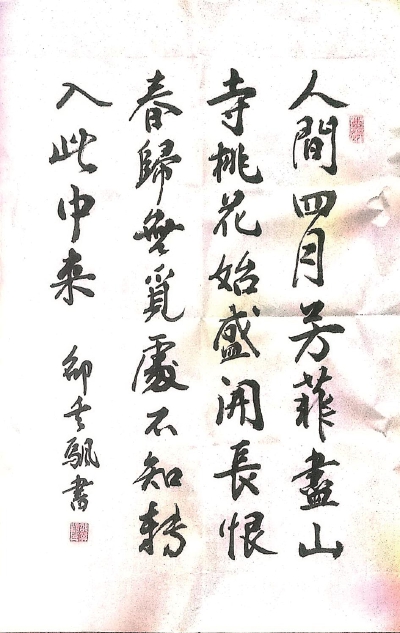 人間四月芳菲盡山
寺桃花始盛開長恨
春歸無覓處不知轉
入此中来
書